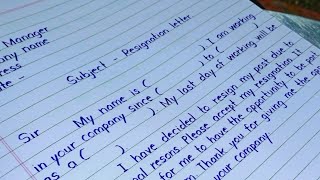 Manager
any name
ress
te -
Subject - Resignation letter
Sir
My name is ( ). I am working
in your company since ( ) to ( )
as a ( ). My last day of working will be
I have decided to resign my post due to
nal resons. Please accept my resignation. It
for me to have the opportunity to be part
m. Thank you for giving me the
your company.